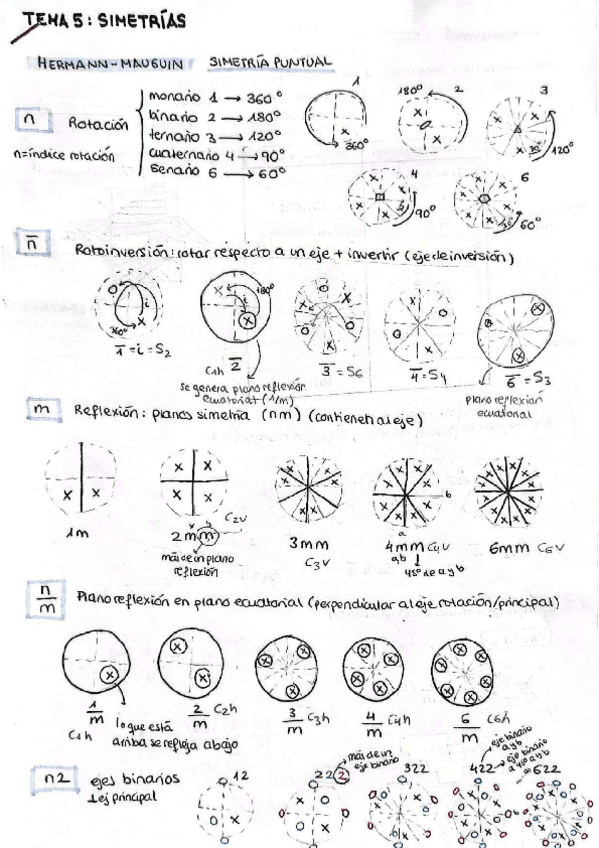 TEMA 5: SIMETRÍAS
HERMANN-MAUGUIN SIMETRÍA PUNTUAL
n Rotación
n=índice rotación
monario 1 → 360º
binario 2 → 180º
ternario 3 → 120º
cuaternario 4 → 90º
senario 6 → 60º
1 360º
180º 2
3 30º 120º
4 90º
6 60º
n̅ Rotoinversión: rotar respecto a un eje + invertir (eje de inversión)
i 360º
180º i
1̅ = i = S2
C1h 2̅
3̅ = S6
4̅ = S4
6̅ = S3
se genera plano reflexión ecuatorial (1/m)
plano reflexion ecuatorial
m Reflexión: planos simetría (nm) (contienen al eje)
1m
x y
2mm C2v
más de un plano reflexión
3mm
C3v
b
a
4mm C4v
a,b 45º de a y b
6mm C6v
n/m Plano reflexión en plano ecuatorial (perpendicular al eje rotación/principal)
1/m C1h
lo que está arriba se refleja abajo
2/m C2h
3/m C3h
4/m C4h
6/m C6h
n2 ejes binarios
⊥ ej principal
12
222
más de un eje binario
322
422
eje binario a y b
eje binario a 45º a y b
622